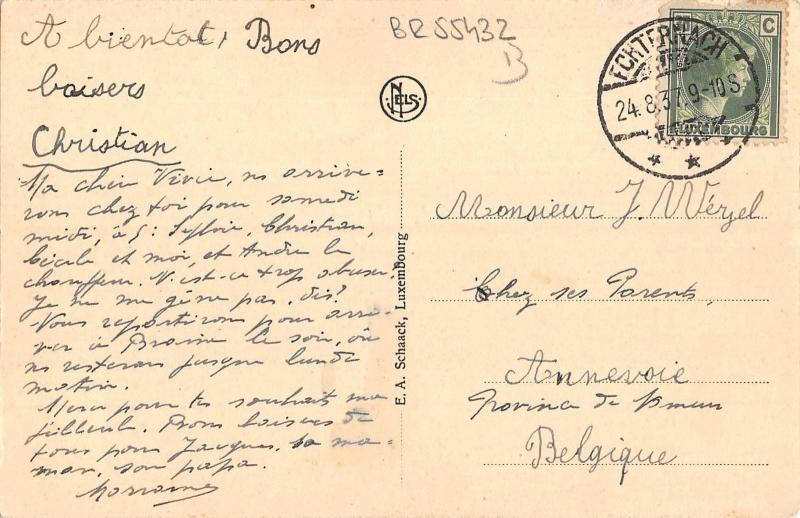 A bientot, Bons
baisers
Christian
Ma chère Vivie, ns arrive-
rons chez toi pour samedi
midi, à 5: Sylvie, Christian,
Cécile et moi, et André le
chauffeur. N'est-ce trop abuser?
Je ne me gêne pas, dis?
Nous repartirons pour arri-
ver à Braine le soir, où
ns resterons jusque lundi
matin.
Merci pour tes souhaits ma
filleule. Bons baisers de
tous pour Jacques, sa ma-
man, son papa.
Marraine
BR55432
B
NELS
E. A. Schaack, Luxembourg
ECHTERNACH
24.8.37. 9-10 S
C
LUXEMBOURG
Monsieur J. Wérzel
Chez ses Parents,
Annevoie
Province de Namur
Belgique